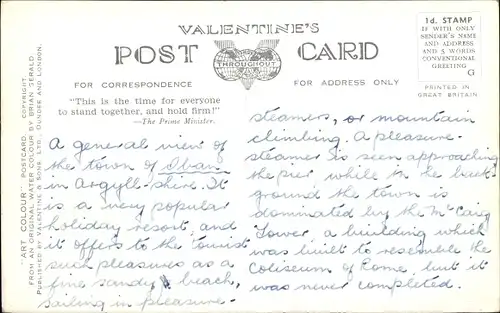 VALENTINE'S
POST CARD
THROUGHOUT
FOR CORRESPONDENCE
FOR ADDRESS ONLY
1d. STAMP
IF WITH ONLY
SENDER'S NAME
AND ADDRESS
AND 5 WORDS
CONVENTIONAL
GREETING
G
PRINTED IN
GREAT BRITAIN
"This is the time for everyone
to stand together, and hold firm!"
—The Prime Minister.
"ART COLOUR" POSTCARD. COPYRIGHT.
FROM AN ORIGINAL WATER COLOUR BY BRIAN GERALD.
PUBLISHED BY VALENTINE & SONS, LTD., DUNDEE AND LONDON.
A general view of
the town of Oban
in Argyll-shire. It
is a very popular
holiday resort, and
it offers to the tourist
such pleasures as a
fine sandy beach,
sailing in pleasure-
steamers, or mountain
climbing. A pleasure-
steamer is seen approaching
the pier while in the back-
ground the town is
dominated by the McCaig
Tower, a building which
was built to resemble the
Coliseum of Rome, but it
was never completed.